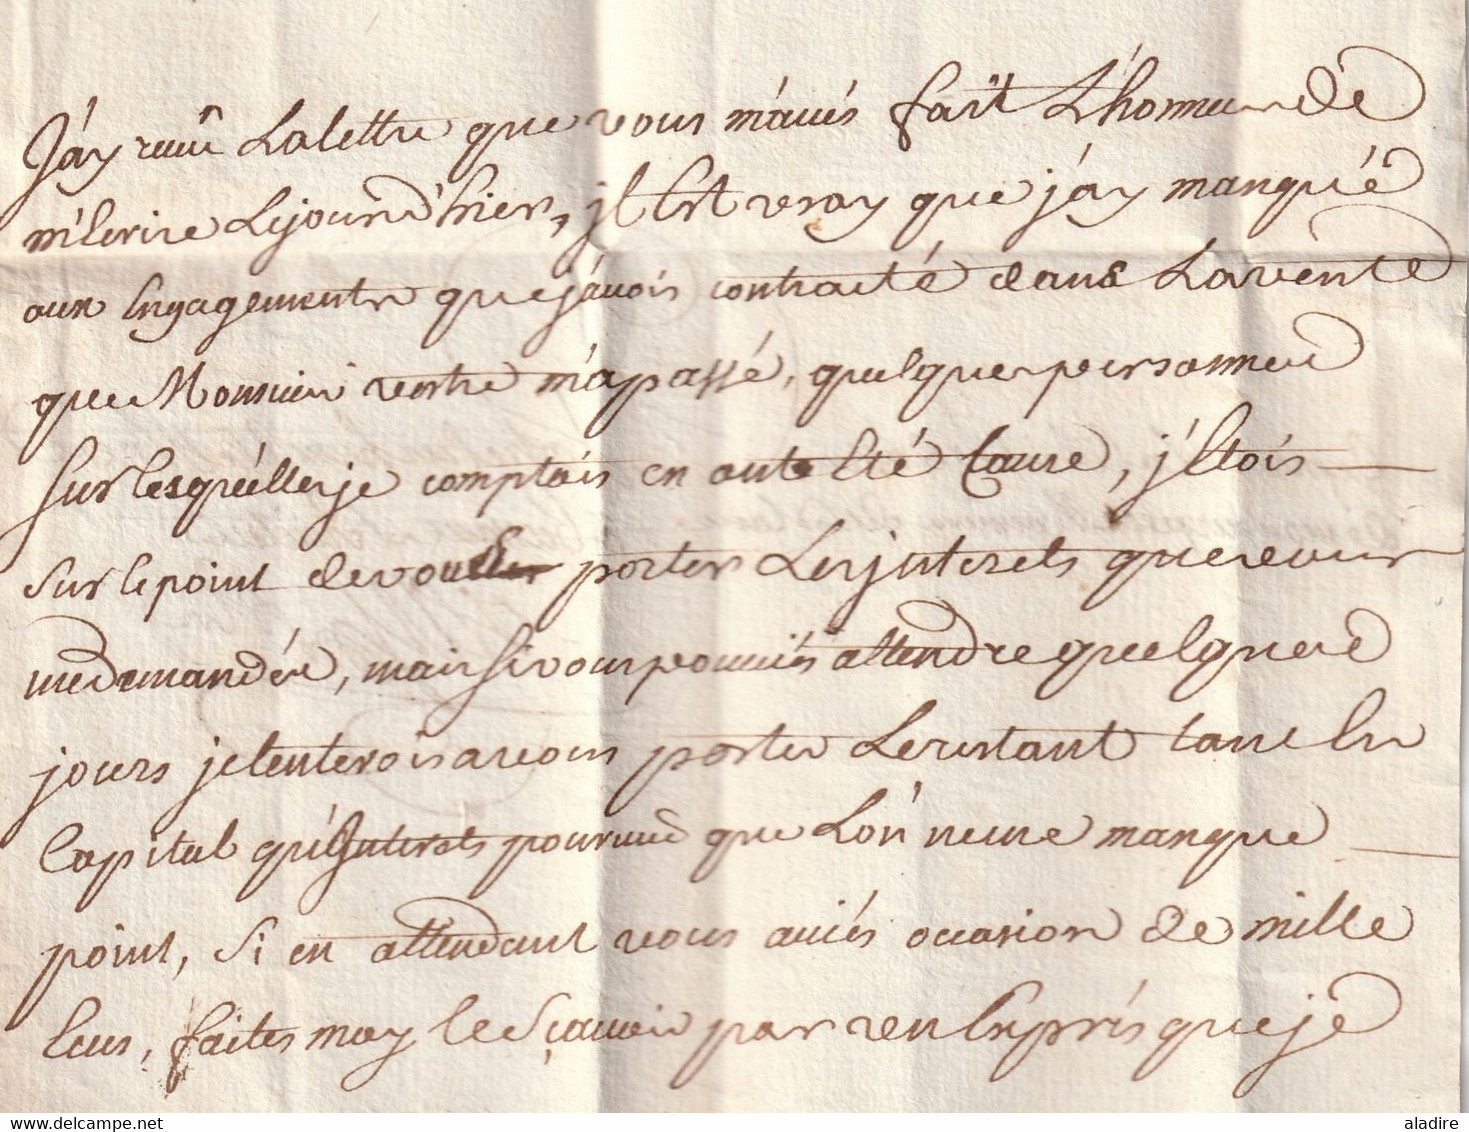 J'ay receu La lettre que vous m'aués fait L'honneur dé
m'Ecrire Le jour d'hier, jl Est vray que j'ay manqué
aux Engagements que j'auois contracté dans La vente
que Monsieur vostre m'a passé, quelques personnes
sur lesquélles je comptois en ont Eté Cause, j'Etois
sur le point de vous porter Les jnterets que vous
me demandés, mais si vous pouuiés attendre quelques
jours je tenterois a vous porter Le restant tant En
Capital qu'jnterets pourueu que L'on ne me manque
point, Si en attendant vous auiés occasion de mille
Ecus, faites moy le Sçauoir par un Exprés que je
aladire
delcampe.net